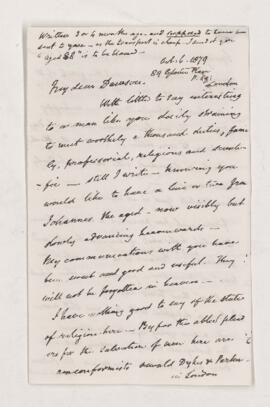 Written 3 or 4 months ago and supposed to have been
sent to you — as the transport is cheap I send it you
"aged 88" is to be blamed —
Oct. 6. 1879
89 Gloucester Place
London
My dear Dawson
With little to say interesting
to a man like you daily straining
to meet worthily a thousand duties, fami
ly, professorial, religious and scienti-
fic — still I write — knowing you
would like to have a line or two from
Johannes the aged — now visibly but
slowly advancing heavenwards —
My communications with you have
been sweet and good and useful. They
will not be forgotten in heaven —
I have nothing good to say of the state
of religion here — By far the ablest plead
ers for the salvation of men here are
nonconformists Oswald Dykes & Parker
in London